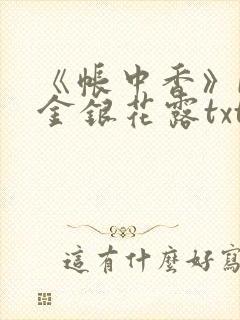 《帳中香》
金銀花露txt
這有什麼好寫